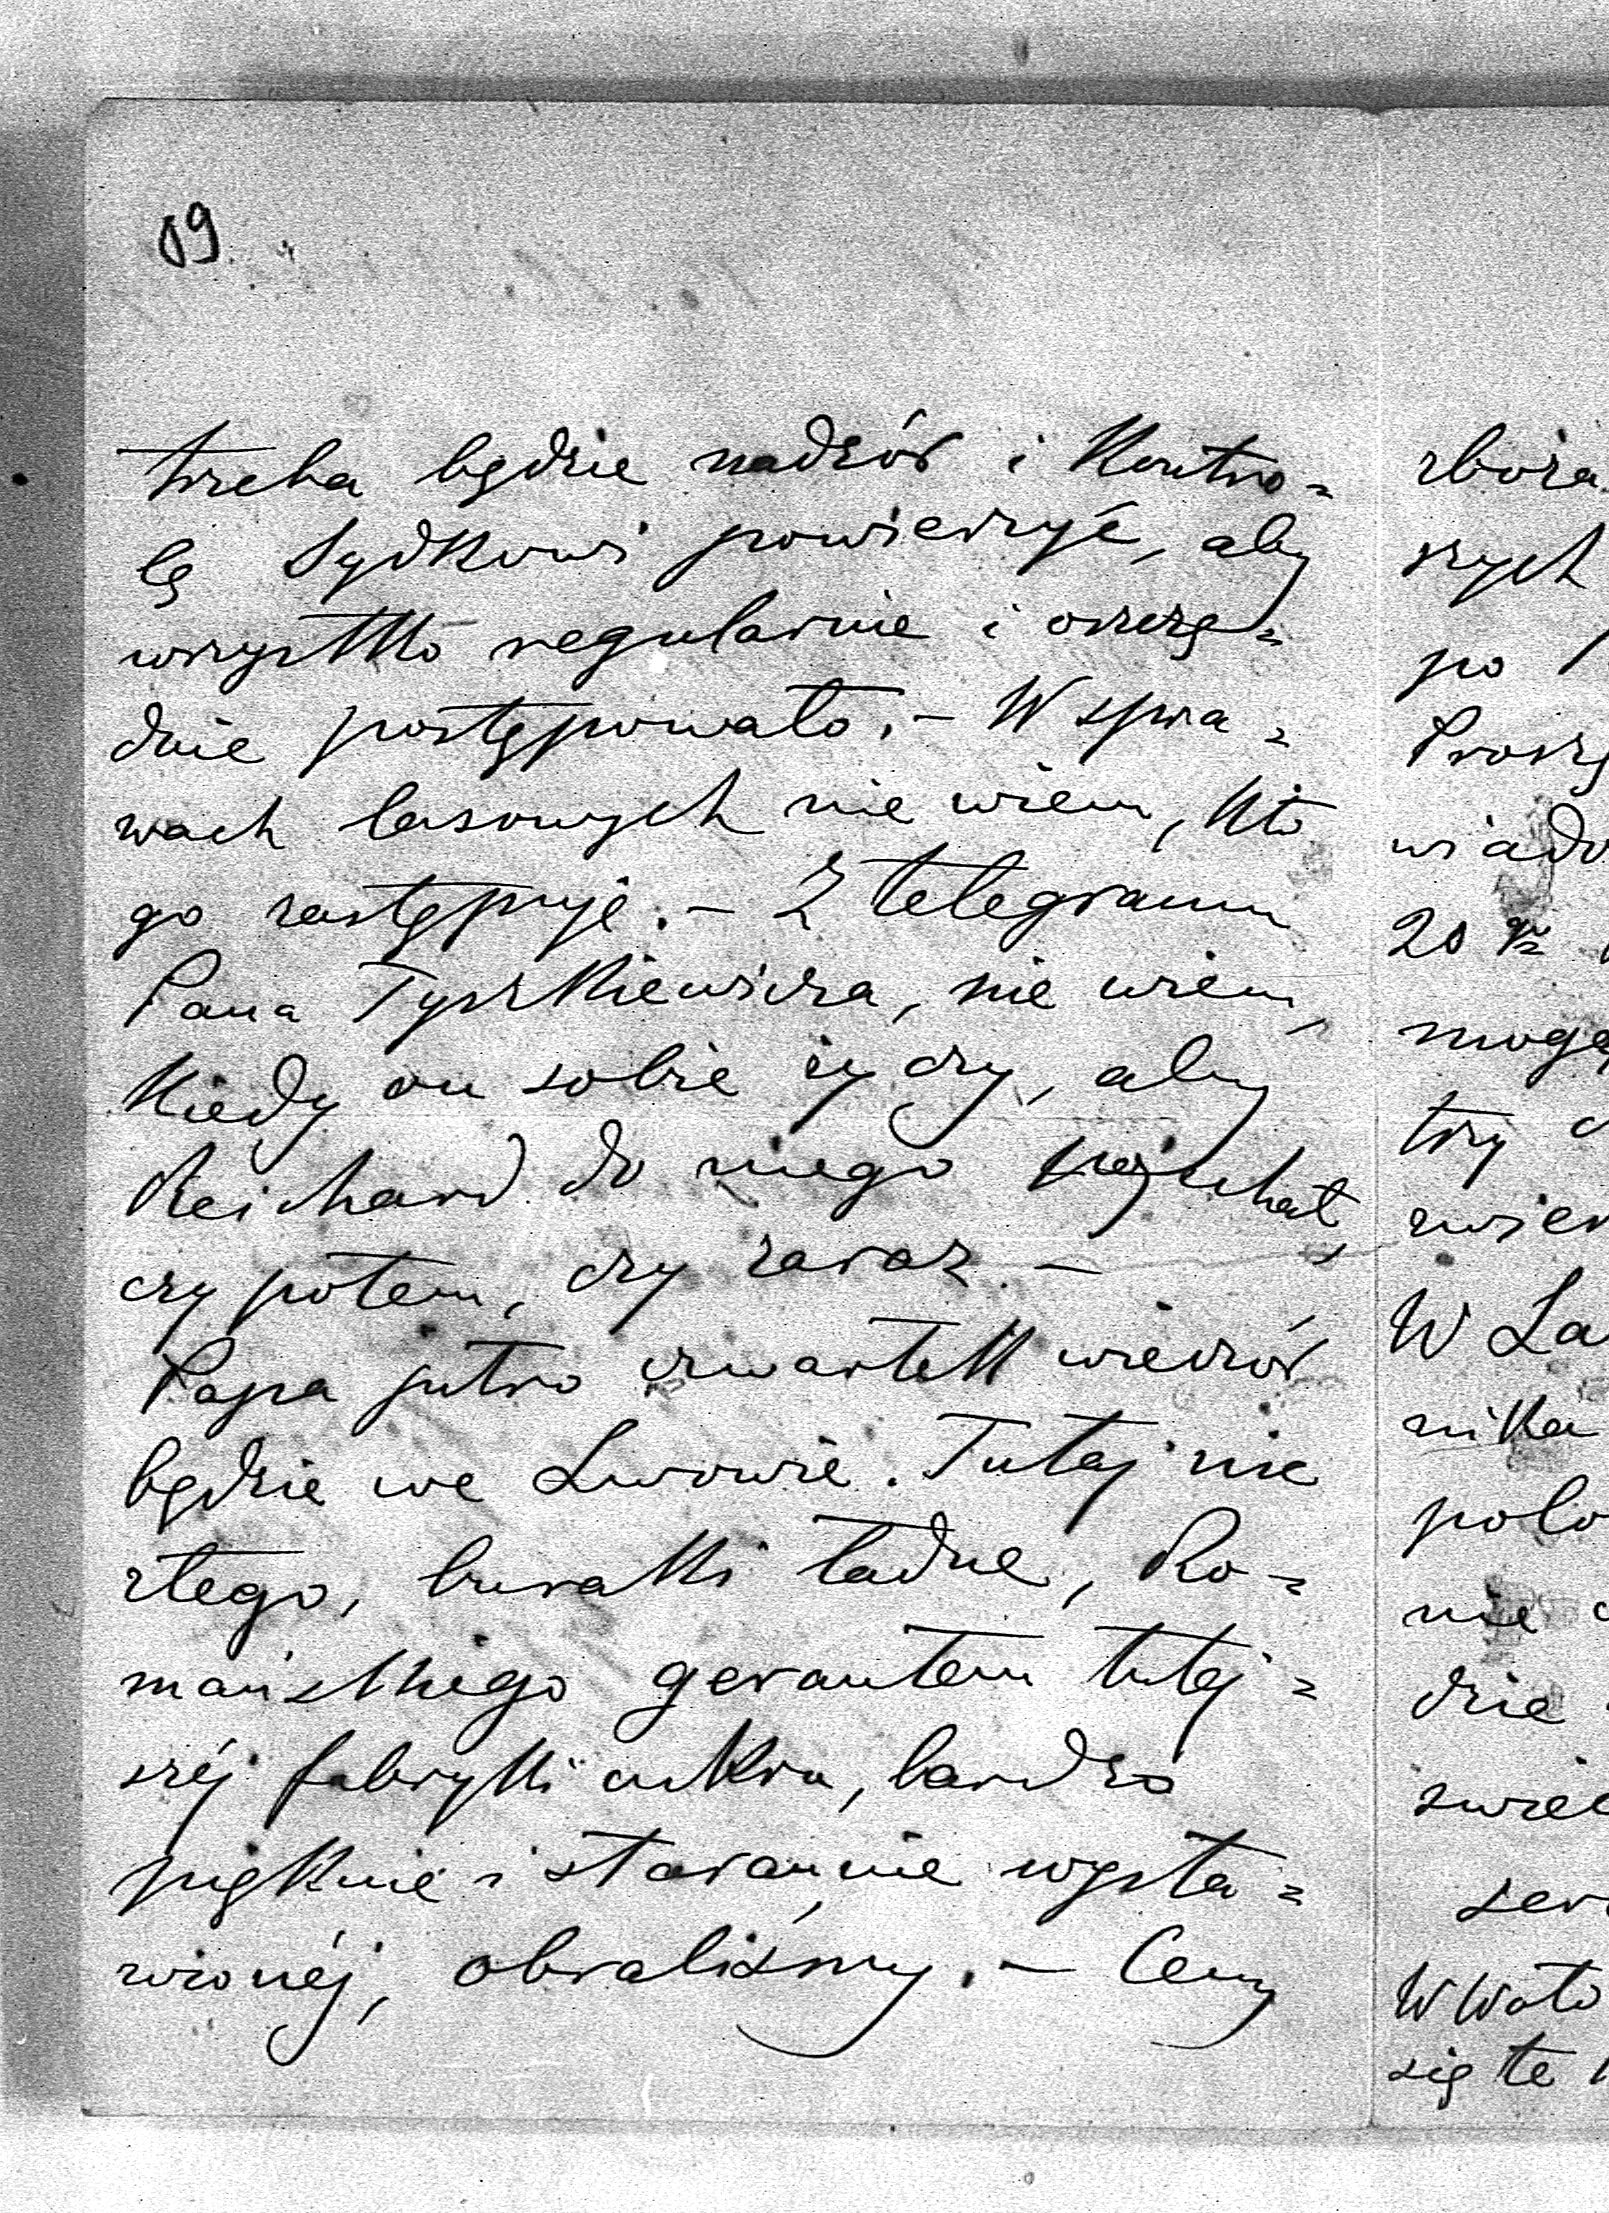 89
trzeba będzie nadzór i Kontro=
lę Sydkowi powierzyć, aby
wszystko regularnie i oszczę=
dnie postępowało. – W spra=
wach lasowych nie wiem, kto
go zastępuje. – Z telegramu
Pana Tyszkiewicza, nie wiem,
kiedy on sobie życzy, aby
Reichard do niego pojechał,
czy potem, czy zaraz. –
Papa jutro czwartek wieczór
będzie we Lwowie. Tutaj nic
złego, buraki ładne, Ro=
mańskiego gerantem tutej=
széj fabryki cukru, bardzo
pięknie i starannie wysta=
wionéj, obraliśmy. – Ceny
zboża
szych
po
Proszę
wiado
20
mogę
try
zwier
W La
nika
polo
nie
dzie
zwie
ser
W Woło
się te